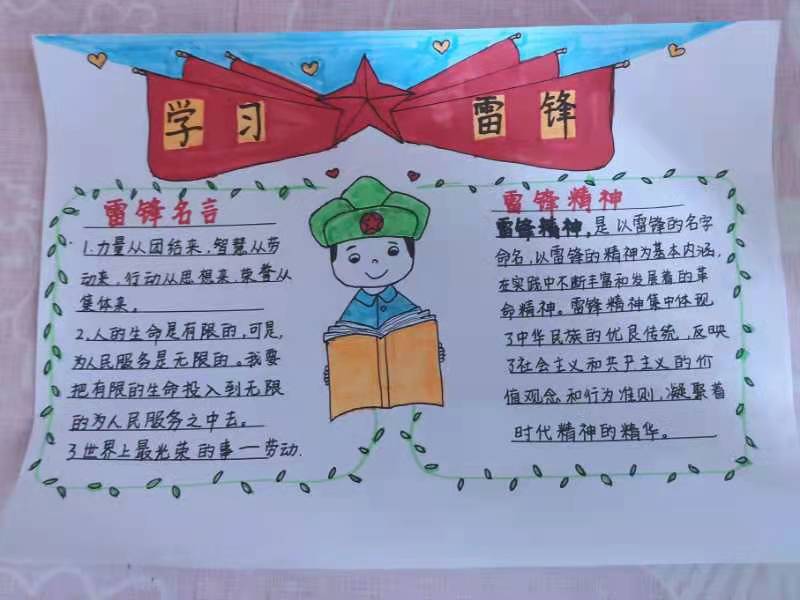 学习 雷锋
雷锋名言
1.力量从团结来,智慧从劳
动来,行动从思想来,荣誉从
集体来。
2.人的生命是有限的,可是,
为人民服务是无限的。我要
把有限的生命投入到无限
的为人民服务之中去。
3世界上最光荣的事一劳动.
雷锋精神
雷锋精神,是以雷锋的名字
命名,以雷锋的精神为基本内涵,
在实践中不断丰富和发展着的革
命精神。雷锋精神集中体现
了中华民族的优良传统,反映
了社会主义和共产主义的价
值观念和行为准则,凝聚着
时代精神的精华。